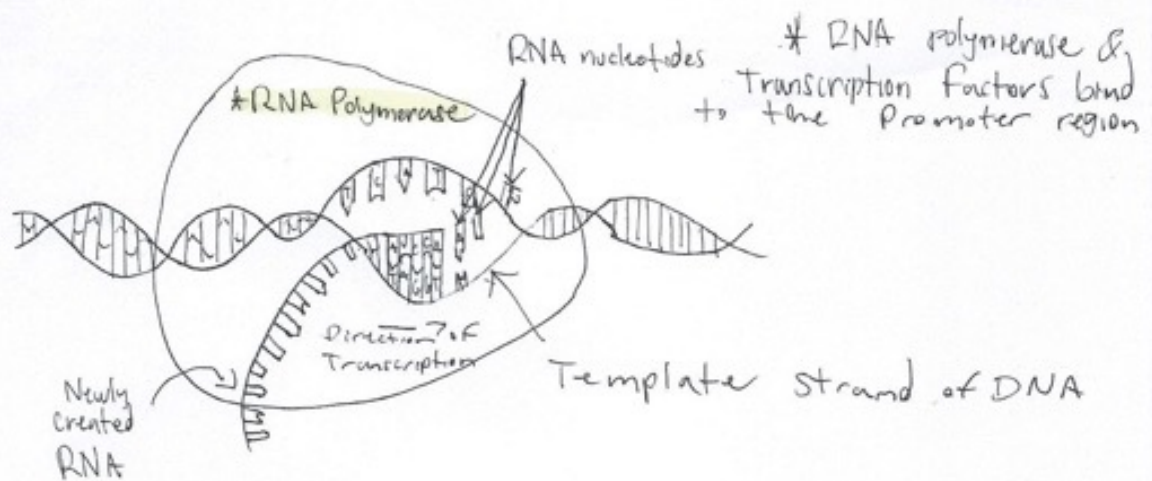 RNA nucleotides
* RNA polymerase &
Transcription Factors bind
to the Promoter region
*RNA Polymerase
Direction of
Transcription
Template strand of DNA
Newly
created
RNA